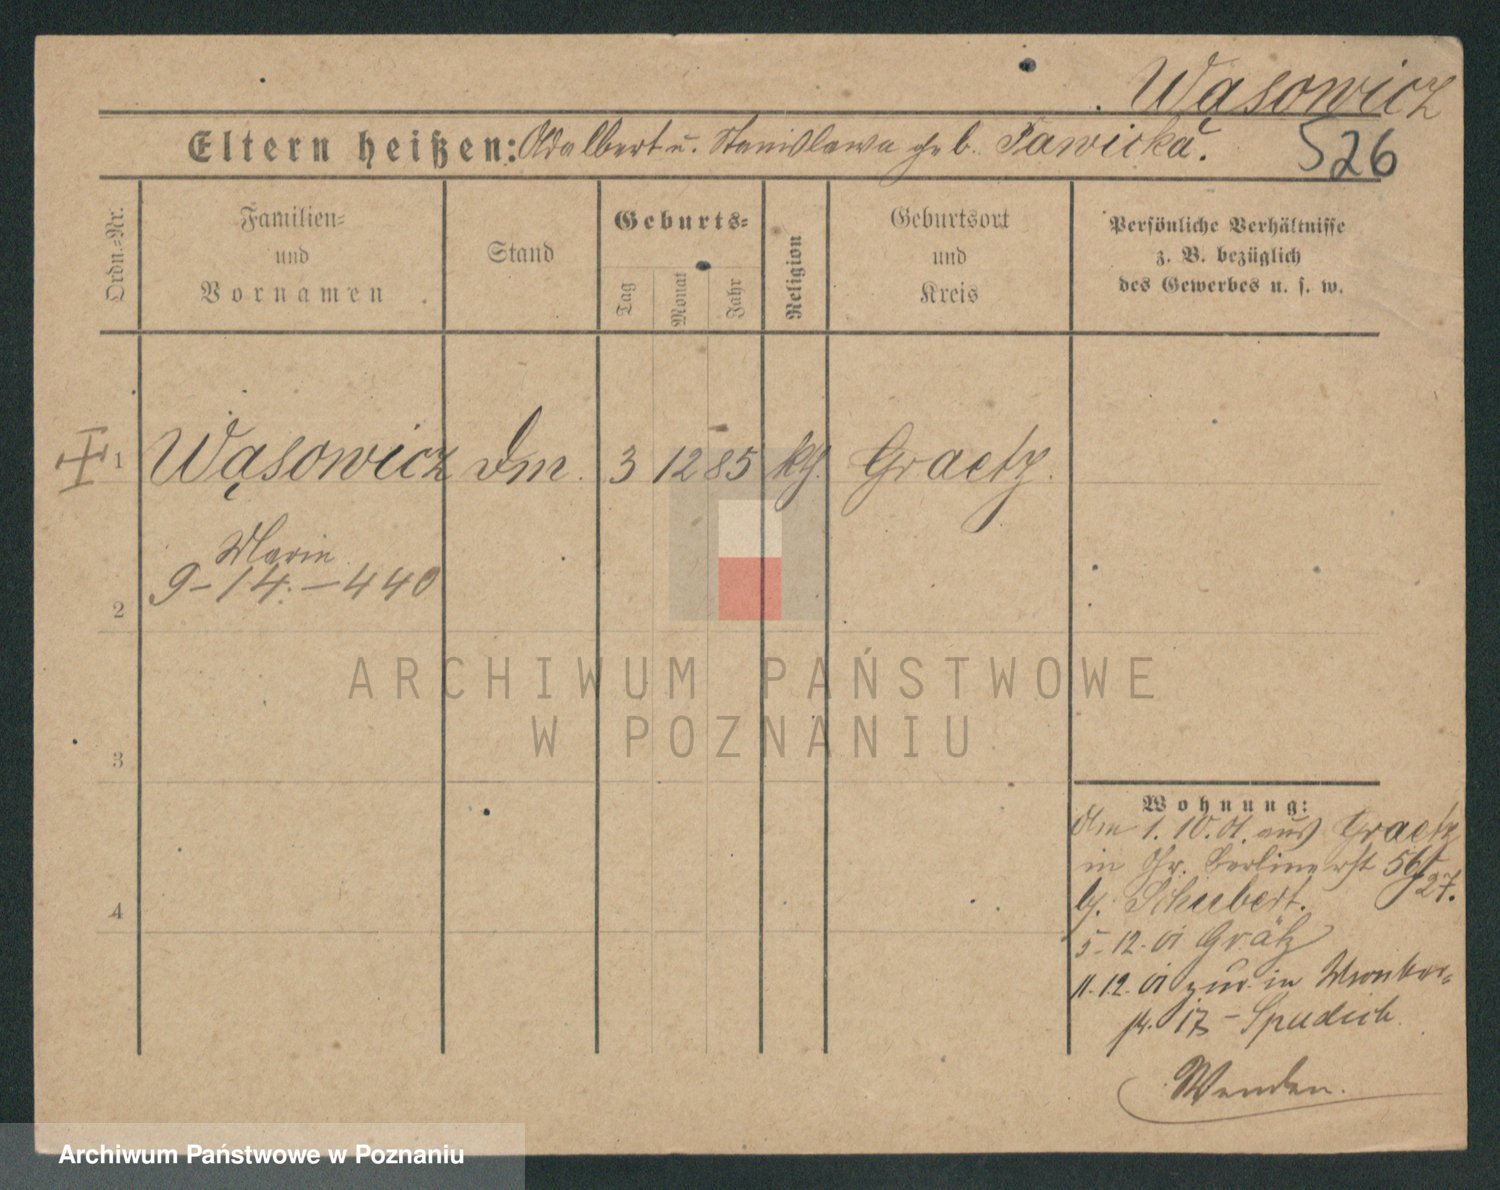 Wąsowicz
526
Eltern heißen: Adalbert u. Stanislawa geb. Sawicka.
Ordn.=Nr.
Familien=
und
Vornamen
Stand
Geburts=
Tag
Monat
Jahr
Religion
Geburtsort
und
Kreis
Persönliche Verhältnisse
z. B. bezüglich
des Gewerbes u. s. w.
1 Wąsowicz Dm. 3 12 85 kth. Graetz.
Marie
9-14.-440
2
3
4
Wohnung:
1.10.01. aus Graetz
in Gr. Berlinerst 56
27.
b/. Schubert.
5-12-01 Grätz
11.12.01 zur. in Wronker=
pl. - Spudich.
Wenden.
ARCHIWUM PAŃSTWOWE
W POZNANIU
Archiwum Państwowe w Poznaniu